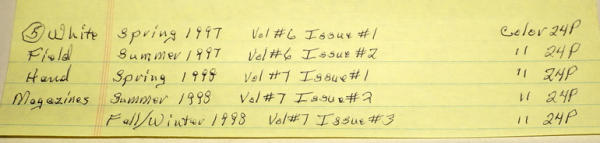 ⑤ White Spring 1997 Vol #6 Issue #1 Color 24P
Field Summer 1997 Vol #6 Issue #2 " 24P
Hand Spring 1998 Vol #7 Issue #1 " 24P
Magazines Summer 1998 Vol #7 Issue #2 " 24P
Fall/Winter 1998 Vol #7 Issue #3 " 24P